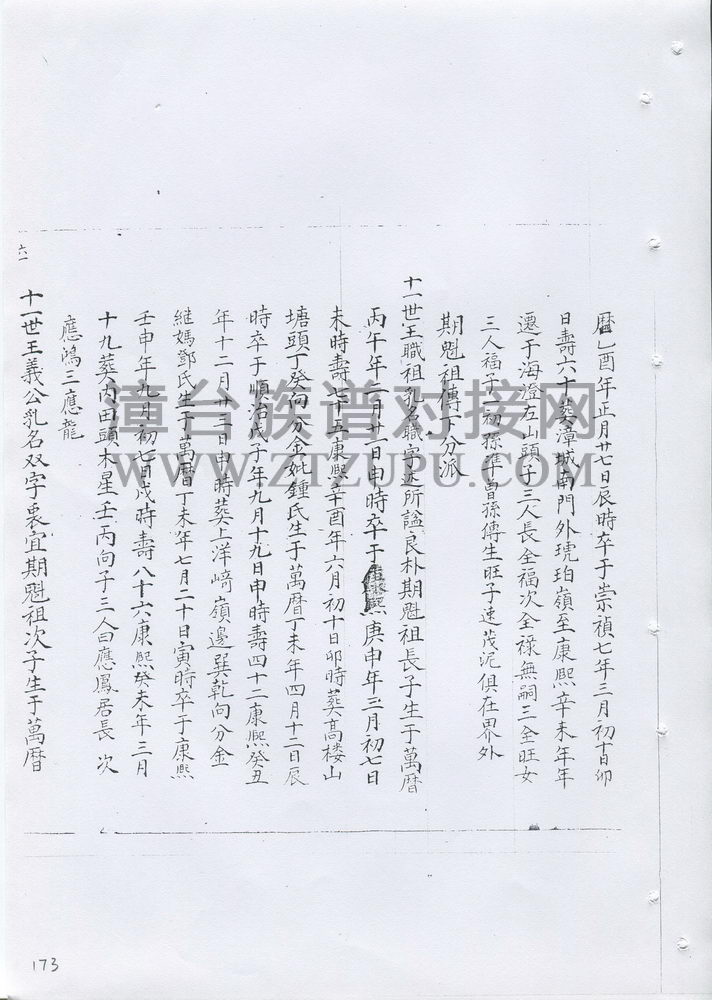 曆乙酉年正月廿七日辰時卒于崇禎七年三月初十日卯
日壽六十葬漳城南門外琥珀嶺至康熙辛未年年
遷于海澄左山頭子三人長全福次全祿無嗣三全旺女
三人福子初孫準曾孫傳生旺子速茂泥俱在界外
期魁祖傳下分派
十一世王職祖乳名職字述所謚良朴期魁祖長子生于萬曆
丙午年二月廿一日申時卒于康熙庚申年三月初七日
未時壽七十五康熙辛酉年六月初十日卯時葬高楼山
塘頭丁癸向分金妣鍾氏生于萬曆丁未年四月十二日辰
時卒于順治戊子年九月十九日申時壽四十二康熙癸丑
年十二月廿三日申時葬上洋崎嶺邊巽乾向分金
継媽鄧氏生于萬曆丁未年七月二十日寅時卒于康熙
壬申年九月初七日戌時壽八十六康熙癸未年三月
十九葬内田頭木星壬丙向子三人曰應鳳居長 次
應鴻三應龍
十一世王義公乳名双字裏宜期魁祖次子生于萬曆
六一
173
漳台族谱对接网
WWW.ZTZUPU.COM